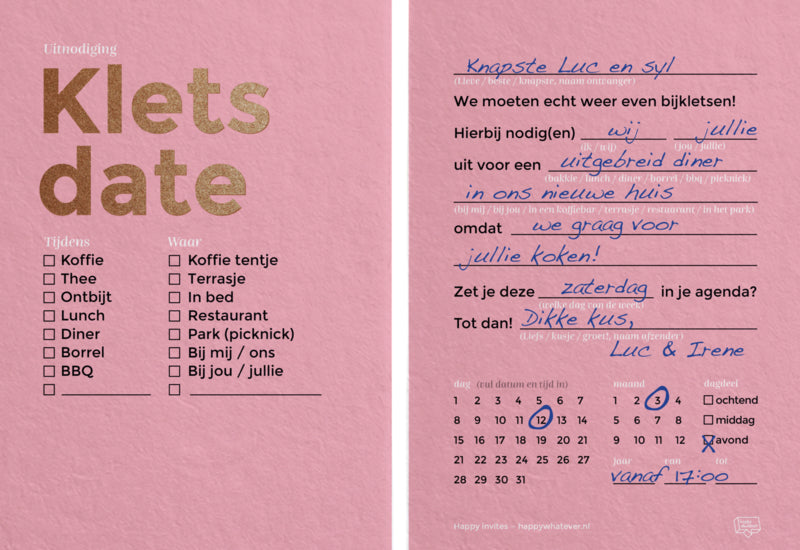 Uitnodiging
Klets
date
Tijdens
Koffie
Thee
Ontbijt
Lunch
Diner
Borrel
BBQ
Waar
Koffie tentje
Terrasje
In bed
Restaurant
Park (picknick)
Bij mij / ons
Bij jou / jullie
Knapste Luc en syl
(Lieve / beste / knapste, naam ontvanger)
We moeten echt weer even bijkletsen!
Hierbij nodig(en) wij jullie
(ik / wij) (jou / jullie)
uit voor een uitgebreid diner
(bakkie / lunch / diner / borrel / bbq / picknick)
in ons nieuwe huis
(bij mij / bij jou / in een koffiebar / terrasje / restaurant / in het park)
omdat we graag voor
jullie koken!
Zet je deze zaterdag in je agenda?
(welke dag van de week)
Tot dan! Dikke kus,
(Liefs / kusje / groet!, naam afzender)
Luc & Irene
dag (vul datum en tijd in)
1 2 3 4 5 6 7
8 9 10 11 12 13 14
15 16 17 18 19 20 21
21 22 23 24 25 26 27
28 29 30 31
maand
1 2 3 4
5 6 7 8
9 10 11 12
dagdeel
ochtend
middag
avond
jaar van tot
vanaf 17:00
Happy invites – happywhatever.nl